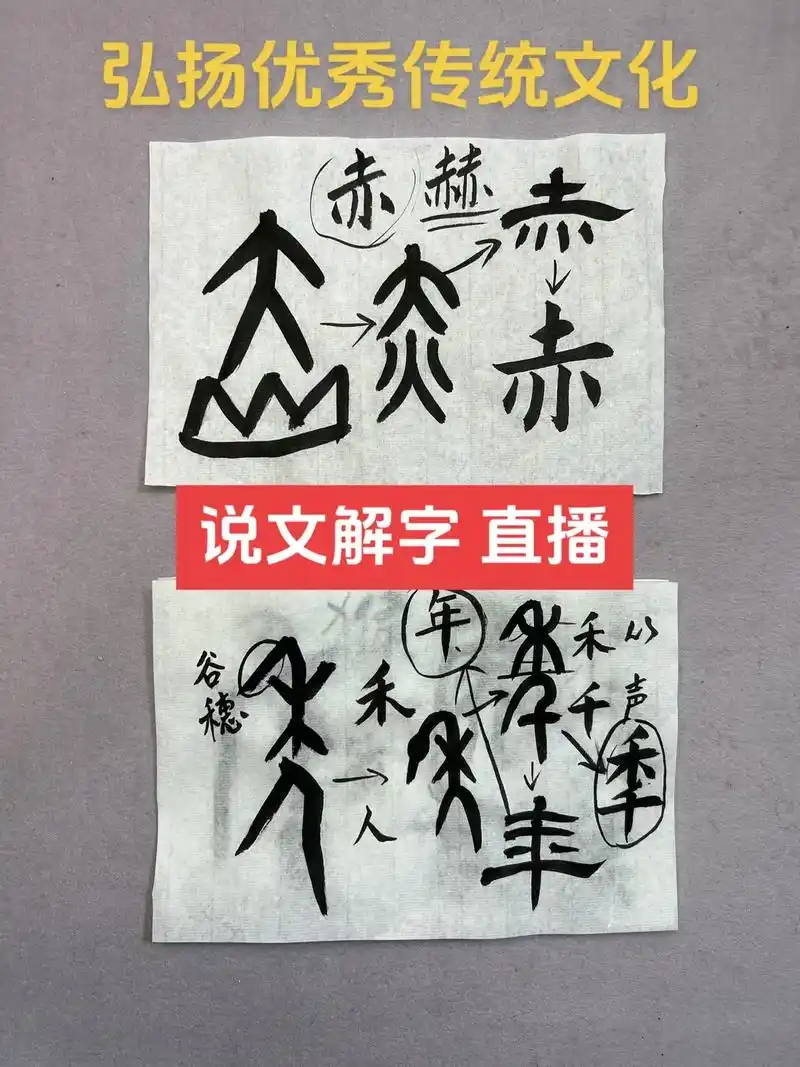 弘扬优秀传统文化
赤 赫 赤
赤
说文解字 直播
年 禾 从
谷穗 禾 千 声
人 秊